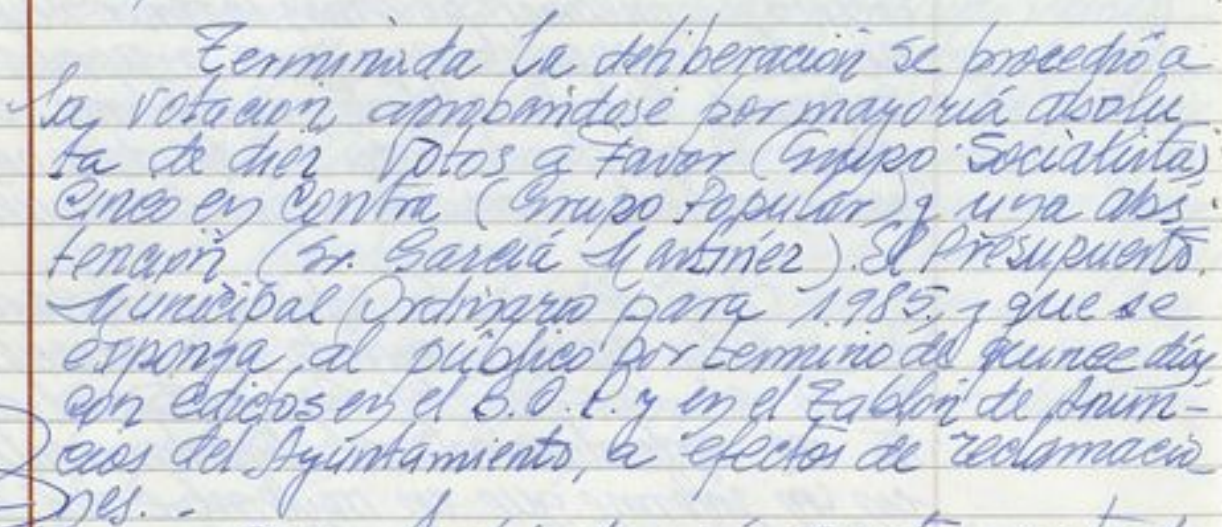 Terminada la deliberación se procedió a
la votación aprobandose por mayoriá absolu
ta de diez votos a favor (Grupo Socialista)
Cinco en contra (Grupo Popular) y una abs
tención (Sr. Garciá Martinéz). El Presupuesto
Municipal Ordinario para 1.985, y que se
exponga al público por termino de quince días
con edictos en el B.O.P. y en el Tablón de Anun-
cios del Ayuntamiento, a efectos de reclamacio
nes. -